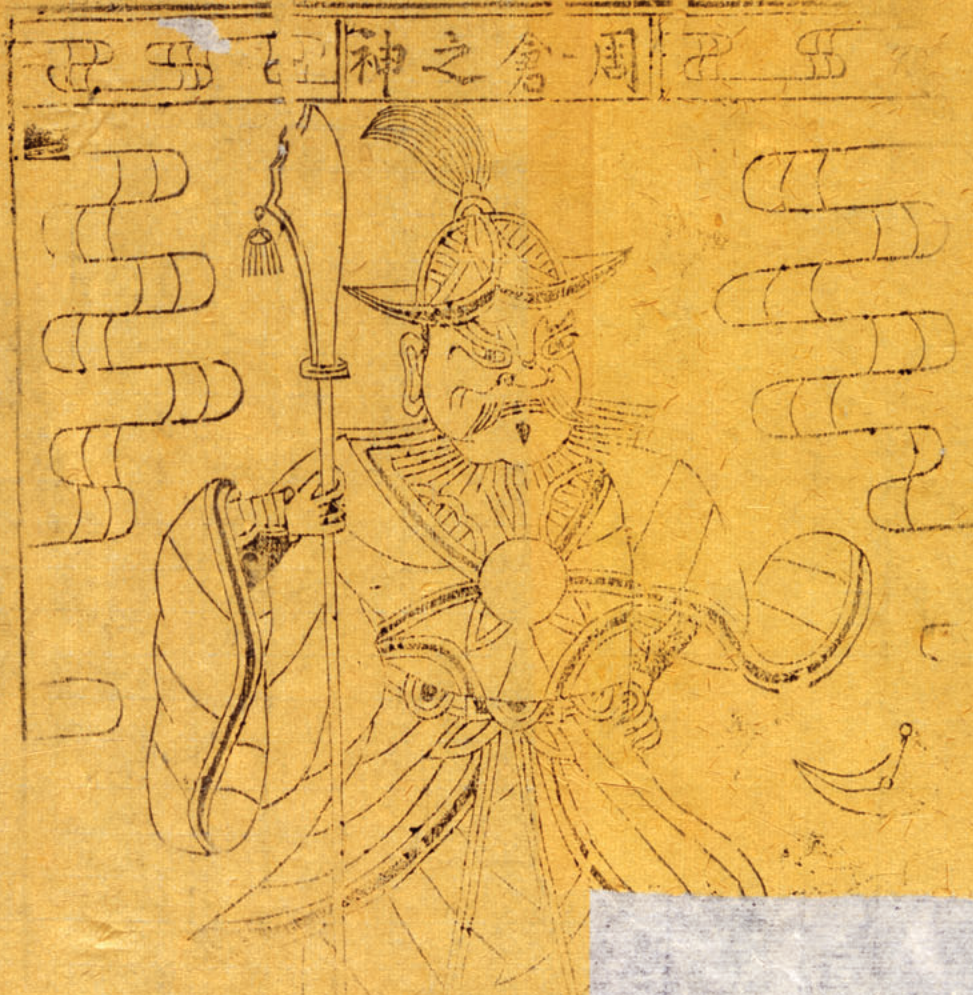 周倉之神